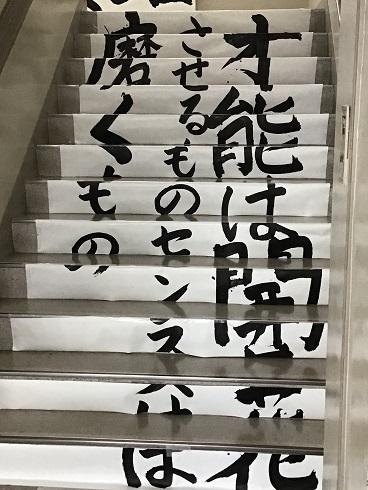 才能は開花
させるものセンスは
磨くもの